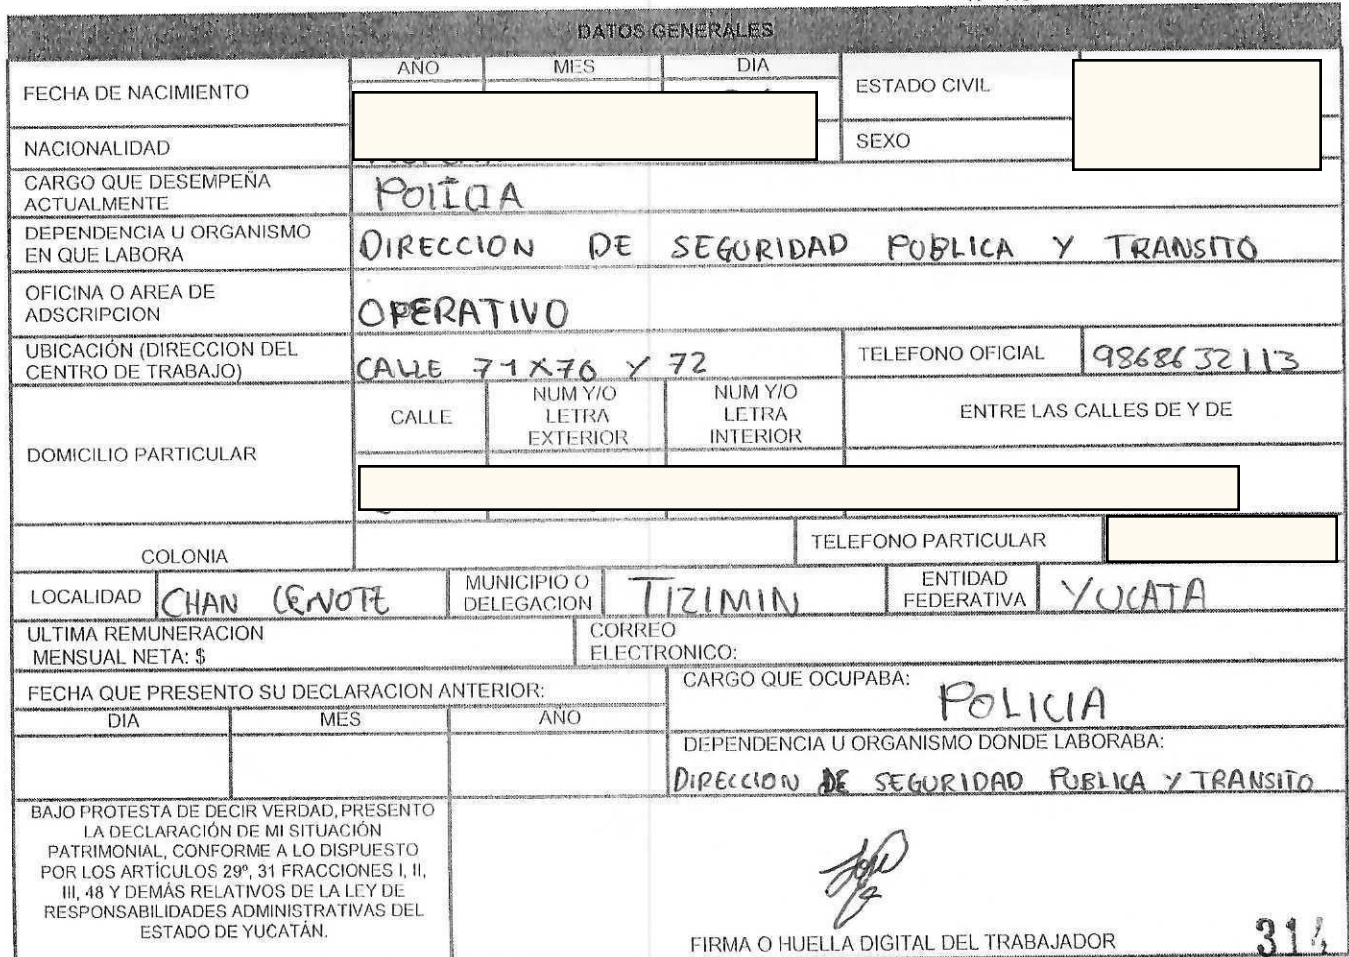 DATOS GENERALES
FECHA DE NACIMIENTO
AÑO MES DIA
ESTADO CIVIL
NACIONALIDAD
SEXO
CARGO QUE DESEMPEÑA
ACTUALMENTE
POLICIA
DEPENDENCIA U ORGANISMO
EN QUE LABORA
DIRECCION DE SEGURIDAD PUBLICA Y TRANSITO
OFICINA O AREA DE
ADSCRIPCION
OPERATIVO
UBICACIÓN (DIRECCION DEL
CENTRO DE TRABAJO)
CALLE 71X70 Y 72
TELEFONO OFICIAL
9868632113
DOMICILIO PARTICULAR
CALLE
NUM Y/O
LETRA
EXTERIOR
NUM Y/O
LETRA
INTERIOR
ENTRE LAS CALLES DE Y DE
COLONIA
TELEFONO PARTICULAR
LOCALIDAD
CHAN CENOTE
MUNICIPIO O
DELEGACION
TIZIMIN
ENTIDAD
FEDERATIVA
YUCATA
ULTIMA REMUNERACION
MENSUAL NETA: $
CORREO
ELECTRONICO:
FECHA QUE PRESENTO SU DECLARACION ANTERIOR:
DIA MES AÑO
CARGO QUE OCUPABA:
POLICIA
DEPENDENCIA U ORGANISMO DONDE LABORABA:
DIRECCION DE SEGURIDAD PUBLICA Y TRANSITO
BAJO PROTESTA DE DECIR VERDAD, PRESENTO
LA DECLARACIÓN DE MI SITUACIÓN
PATRIMONIAL, CONFORME A LO DISPUESTO
POR LOS ARTÍCULOS 29º, 31 FRACCIONES I, II,
III, 48 Y DEMÁS RELATIVOS DE LA LEY DE
RESPONSABILIDADES ADMINISTRATIVAS DEL
ESTADO DE YUCATÁN.
FIRMA O HUELLA DIGITAL DEL TRABAJADOR
314